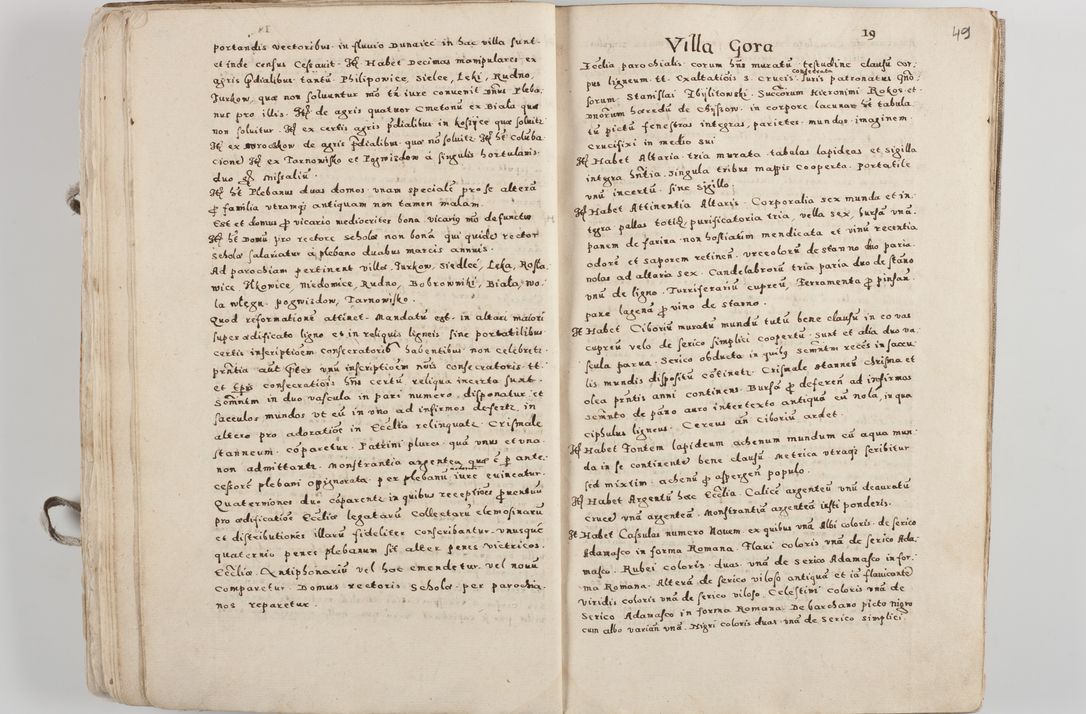 portandis vectoribus in fluvio Dunaiec in hac villa sunt
et inde census Cessavit. Itẽ Habet Decimas manipulares ex
agris p̃dialibus tantũ. Philipowice, Sielec, Leki, Rudno,
Jurkow, quæ non soluuntur mõ tñ iure convenit Dñus Pleba-
nus pro illis. Itẽ de agris quatuor Cmetonũ ex Biala quæ
non soluitur. Itẽ ex certis agris p̃dialibus in kossyce quæ soluitz
Itẽ ex mroczkow de agris p̃dialibus quæ nõ soluitz. Itẽ hẽt Columba
cione Itẽ ex Tarnowisko et Pogwizdow á singulis hortulanis
duo missaliũ.
Itẽ hẽt Plebanus duas domos vnam specialẽ pro se alterã
p̃ familia vtramq; antiquam non tamen malam.
Est et domus p̃ vicario mediocriter bona vicarius mõ defunctus
Itẽ hẽt Domũ pro rectore Scholæ non bonã qui quidẽ rector
Scholæ salariatur á plebano duabus marcis annuis.
Ad parochiam pertinent villæ, Jurkow, Siedlec, Leka, Rosla
wice Ilkowice, Niedomice, Rudno, Bobrowniki, Biala, wo-
la wlegu. pogwizdow, Tarnowisko.
Quod reformationẽ attinet. Mandatũ est. in altari maiori
super ædificato ligno et in reliquis ligneis sine portatilibus
certis inscriptioẽm consecratoris habentibus non celebretz
prñtia aũt p̃ter vnũ inscriptioẽm nõis consecratoris tt.
et tp̃ris consecratiõis hñs certũ reliqua incerta sunt.
Somñtm in duo vascula in pari numero disponatur et
sacculos mundos vt eũ in vno ad infirmos defertz in
altero pro adoratiõe in Ecclia relinquatz. Crismale
stanneum cõparetur. Patrini plures quã vnus et vna
non admittantz. Monstrantia argentea quæ ẽ p̃ ante-
cessorẽ plebani oppignorata per plebanũ modernũ iure euincatur
Quaterniones duo cõparentz in quibus receptiões p̃uentuũ
pro ædificatiõe Eccliæ legatarũ Collectarũ elemosinarũ
et distributiones illarũ fideliter conscribantur. vnusquę
quaternio penes plebanum sit alter penes victricos
Eccliæ. Antiphonariũ vel hoc emendetur vel nouũ
comparetur. Domus rectoris Scholæ per parochia-
nos reparetur.
19
49
Villa Gora
Ecclia parochialis corum hñs muratũ testudine clausũ cor-
pus ligneum tt. Exaltatiõis S. Crucis consecrata Juris patronatus gñõ-
sorum Stanislai Zbijlitowski. Succorum Hieronimi Rokos et
Dnorum hæredũ de Chyssow. in corpore lacunar hẽt tabula-
tũ pictũ fenestras integras, parietes mundos imaginem
crucifixi in medio sui
Itẽ Habet Altaria tria murata tabulas lapideas et sigilla
integra hñtia. singula tribus mappis cooperta. portatile
vnũ incertũ sine sigillo.
Itẽ Habet Attinentia Altaris. Corporalia sex munda et in-
tegra pallas totidẽ, purificatoria tria, vella sex, bursã vnã.
panem de farina non hostiatim mendicata et vinũ recentia
odorẽ et saporem retinẽn. vrceolorũ de stanno duo paria.
nolas ad altaria sex. Candelabrorũ tria paria duo de stãno
vnũ de ligno. Turriferariũ cupreũ, Ferramenta p̃ pinsan.
pane lagenã p̃ vino de stanno.
It Habet Ciboriũ muratũ mundũ tutũ bene clausũ in eo vas
cupreũ velo de serico simplici coopertũ. Sunt et alia duo va-
scula parua. Serico obducta in quibus semñtm recẽs in saccu-
lis mundis dispositũ cõtinetz. Crismale stanneũ chrisma et
olea prñtis anni continens. Bursã p̃ deferen ad infirmos
semñto de pãno auro intertexto antiquã cũ nolã, in qua
cipsulus ligneus. Cereus an Ciboriũ ardet.
Itẽ Habet Fontem lapideum achenum mundum cũ aqua mun-
da in se continentẽ bene clausũ Metrica vtraq; scribitur
sed mixtim. achenũ p̃ aspergen populo.
Itẽ Habet Argentũ hæc Ecclia. Calicẽ argenteũ vnũ deauratũ
Crucẽ vnã argenteã. Monstrantiã argenteã iusti ponderis.
It Habet Casulas numero Nouem. ex quibus vnã Albi coloris de serico
Adamasco in forma Romana. Flaui coloris vnã de serico Ada-
masco. Rubei coloris duas. vnã de Serico Adamasco in for-
ma Romana. Alterã de serico viloso antiquã et iã flauicantẽ
Viridis coloris vnã de serico viloso. Celestini coloris vnã de
Serico Adamasco in forma Romana. De barchano picto nigro
cum albo varian vnã. Nigri coloris duas vnã de Serico simplici